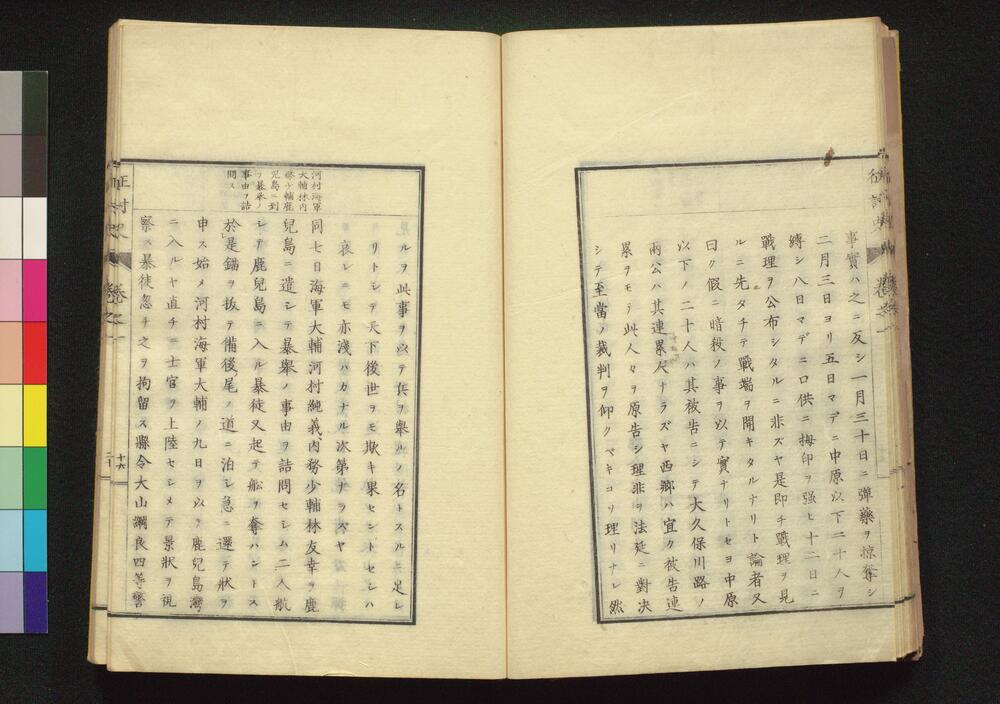 事實ハ之ニ反シ一月三十日ニ彈藥ヲ掠奪シ
二月三日ヨリ五日マデニ中原以下二十人ヲ
縛シ八日マデニ口供ニ拇印ヲ強ヒ十二日ニ
戰理ヲ公布シタルニ非ズヤ是即チ戰理ヲ見
ルニ先タチテ戰端ヲ開キタルナリト論者又
曰ク假ニ暗殺ノ事ヲ以テ實ナリトセヨ中原
以下ノ二十人ハ其被告ニシテ大久保川路ノ
兩公ハ其連累人ナラズヤ西郷ハ宜ク被告連
累ヲモテ此人々ヲ原告シ理非ヲ法廷ニ對決
シテ至當ノ裁判ヲ仰クベキコソ理リナレ然
ルヲ此事ヲ以テ兵ヲ擧ルノ名トスルニ足レ
リトシテ天下後世ヲモ欺キ果セントセシハ
哀レニモ亦淺ハカナル次第ナラズヤ
河村海軍
大輔林内
務少輔鹿
兒島ニ到
リ暴擧ノ
事由ヲ詰
問ス
同七日海軍大輔河村純義内務少輔林友幸ヲ鹿
兒島ニ遣シテ暴擧ノ事由ヲ詰問セシム二人航
シテ鹿兒島ニ入ル暴徒又起テ船ヲ奪ハントス
於是錨ヲ抜テ備後尾ノ道ニ泊シ急ニ還テ狀ヲ
申ス始メ河村海軍大輔ノ九日ヲ以テ鹿兒島灣
ニ入ルヤ直チニ士官ヲ上陸セシメテ景狀ヲ視
察ス暴徒忽チ之ヲ拘留ス縣令大山綱良四等警
卷之一
十六